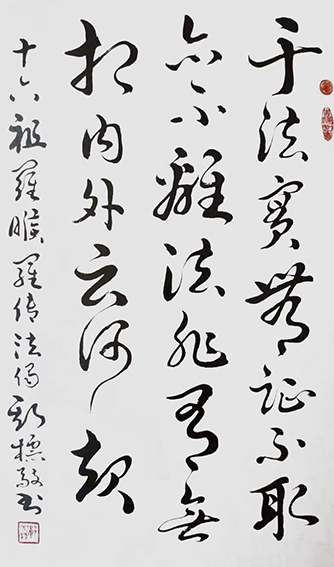 于法實無證不取
亦不離法非有無
相内外云何起
十六祖羅睺羅传法偈標敬书